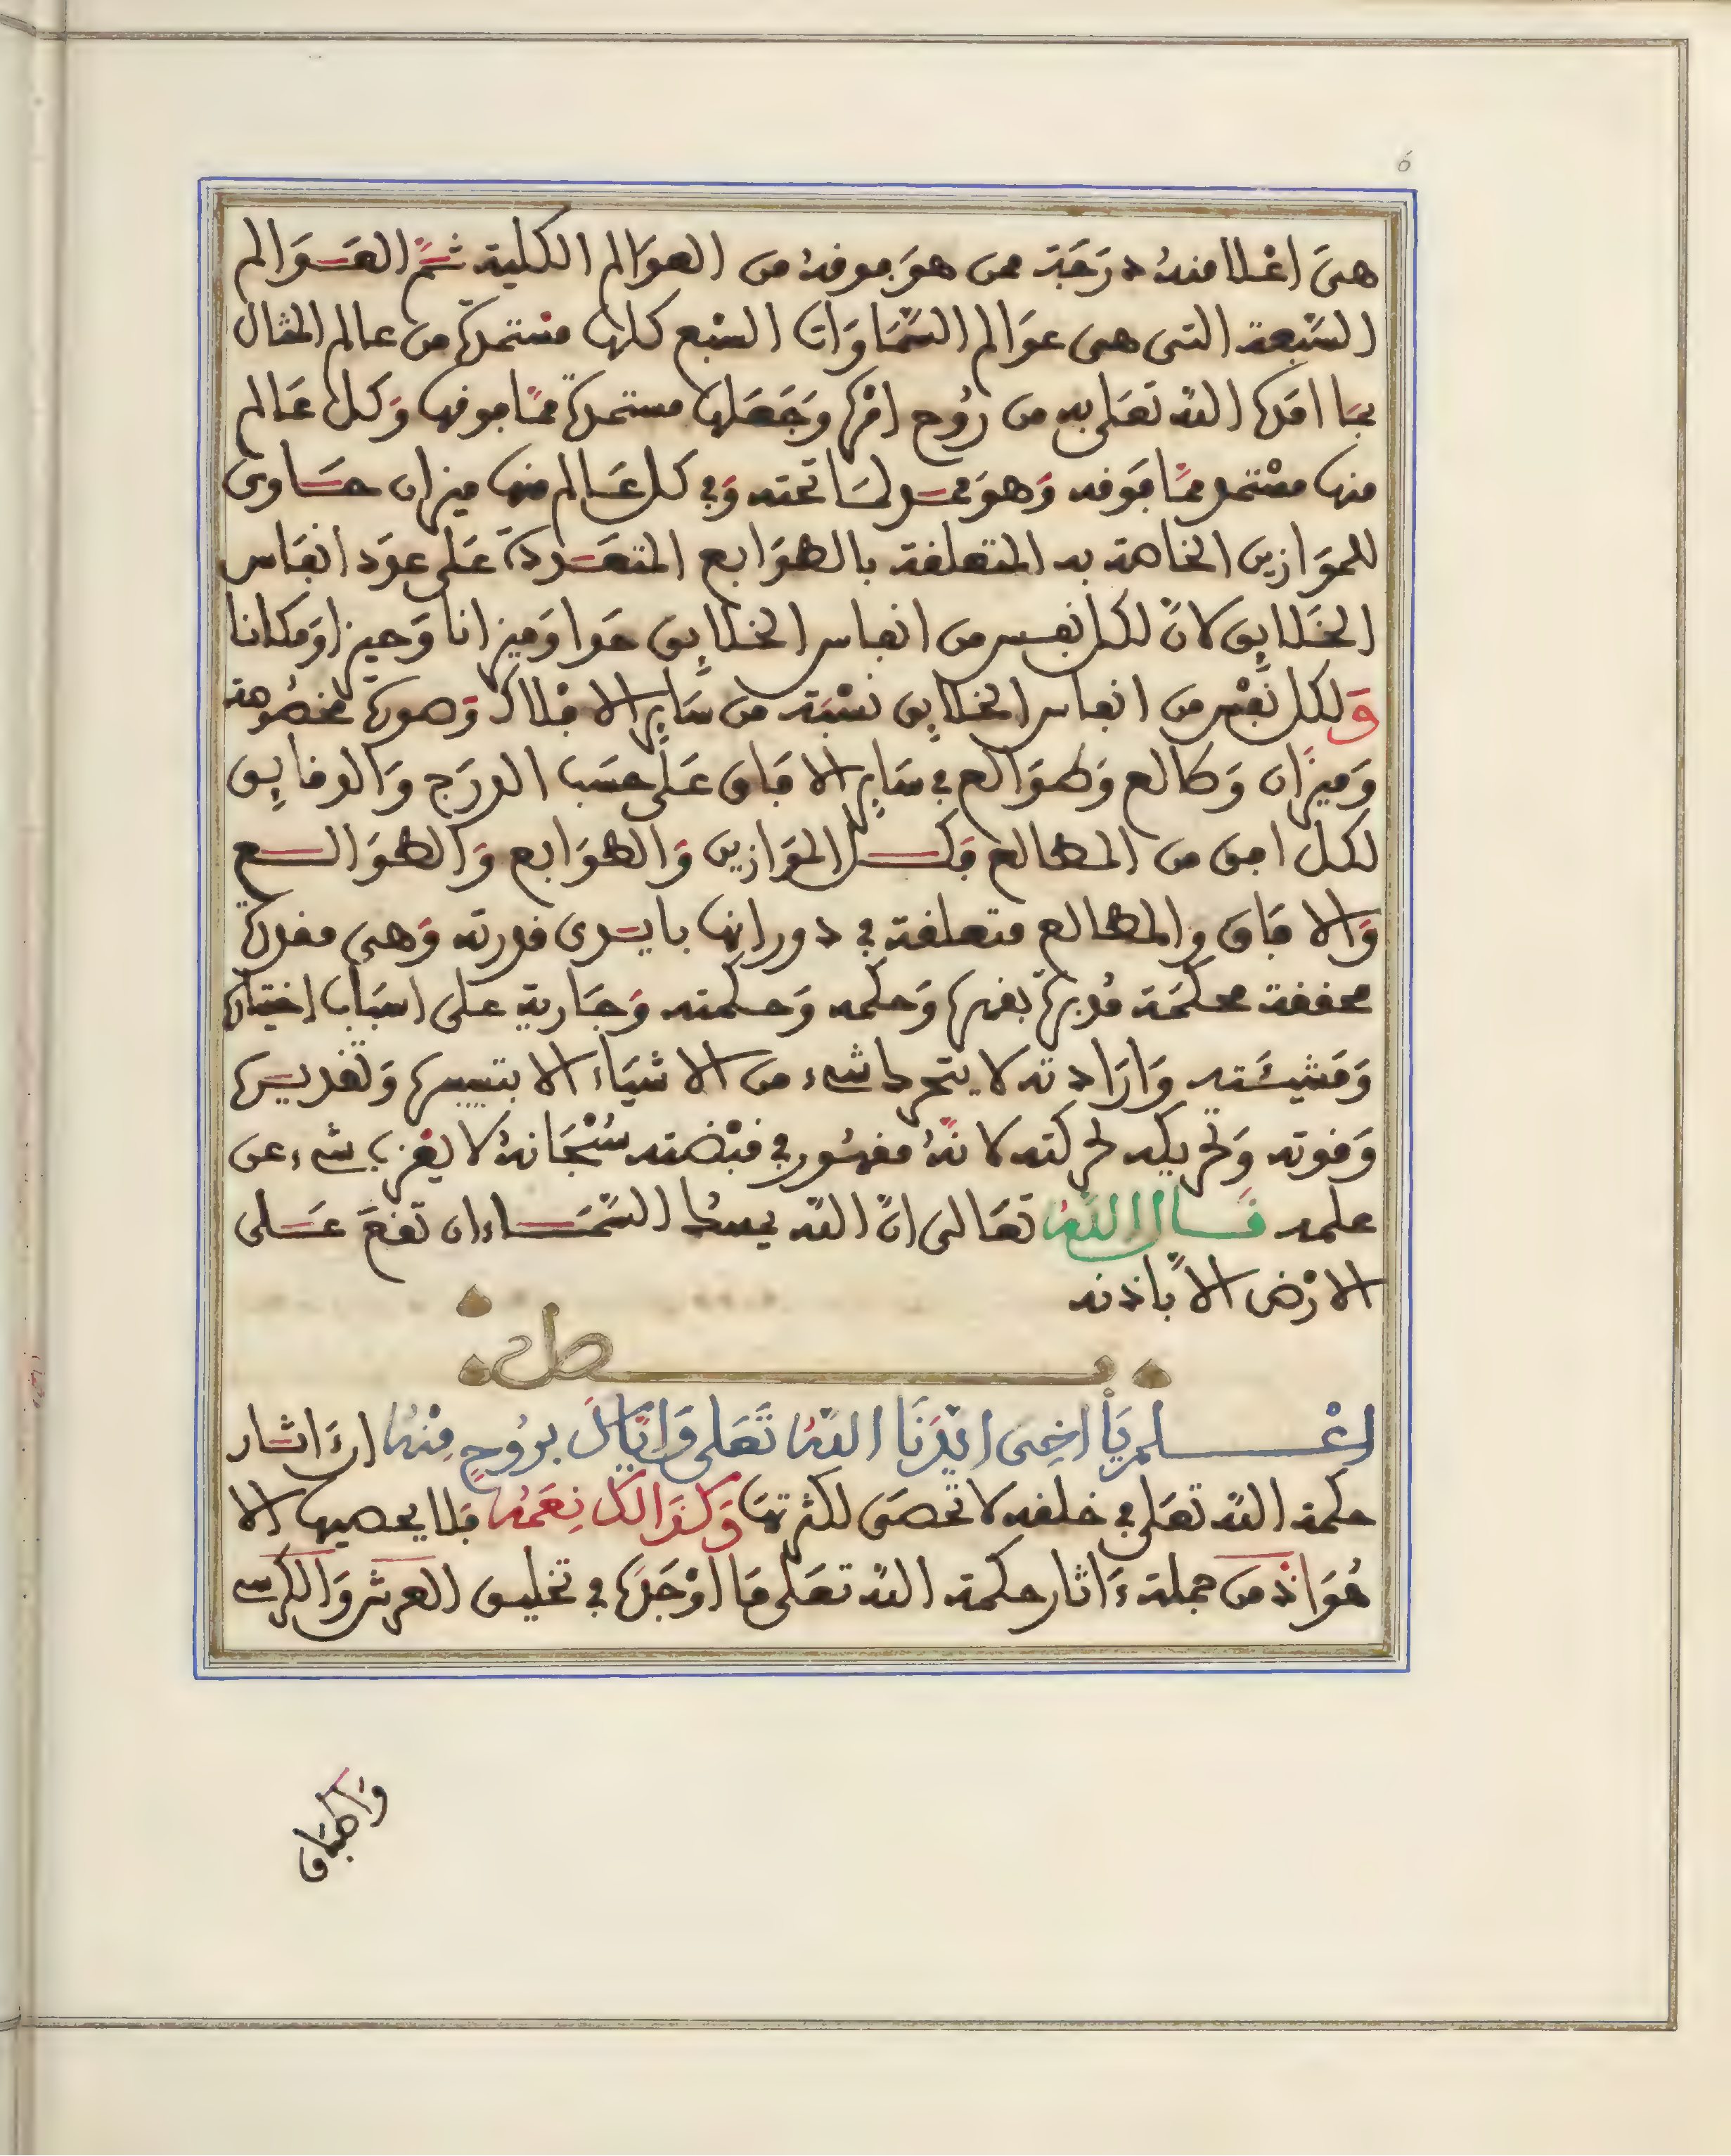 6
هىَ اعْلا منهُ درَجَة ممن هوَ بوقهُ من العوَالم الكلية ثمَّ العَوَالم
السَّبعة التى هى عوَالم السَّمَاوَات السّبع كلها مسْتمدة من عالم المثال
بمَا امَدها اللّه تعَلى به من رُوح امْره وَجَعَلها مستمدة ممَّا فوقها وَكل عَالم
منها مسْتمد ممَّا فَوقه وَهوَ ممد لمَا تحته وَفى كل عَالم منها ميزان حَاوى
للموَازين الخاصة به المتعلقة بالطوَابع المتعَددة عَلى عدَد انفَاس
الخَلايق لانّ لكل نفس من انفاس الخلايق هَوا وَميزانا وَحيزا وَمكانا
وَلكل نَفْس من انفاس الخلايق نسْبَة من سَاير الافْلاك وَصورة مخصُوصة
وَميزَان وَطالع وَطوَالع فى سَاير الافَاق عَلى حسَب الدرَج وَالدقايق
لكل افق من المطالع فكل الموَازين وَالطوَابع وَالطوَالع
وَالافَاق والمطالع متعلقة فى دورانها بايدى قدرته وَهى مقدرة
محققة محكمَة مُدبرة بقهره وَحكمه وَحكمته وَجَارية على اسبَاب اختياره
وَمَشيئَته وَارَادته لا يتحرك شىء من الاشيَاء الا بتيسيره وَتقديره
وَقوته وَتحريكه لحركته لانّهُ مقهُور فى قبْضته سُبْحَانهُ لا يعْزب شىء عن
علمه قَال اللّهُ تعَالى انّ اللّه يمسك السَّمَاء ان تقعَ عَلى
الارْض الاّ باذنه
فصل
اعْلم يَأَاخِى ايّدَنَا اللّهُ تَعَلى وَايَّاكَ برُوحٍ مِنْهُ ان ءَاثار
حكمة اللّه تعَلى فى خلقه لا تحصَى لكثرتهَا وَكذَالكَ نِعَمُه فلا يحصيها الا
هُوَ اذ من جملة ءَاثار حكمة اللّه تعَلى مَا اوْجَدَه فى تخليق العرش وَالكرسى
وَاطبَاق